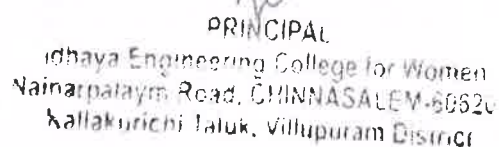 PRINCIPAL
Idhaya Engineering College for Women
Nainarpalaym Road, CHINNASALEM-60620
Kallakurichi Taluk, Villupuram District